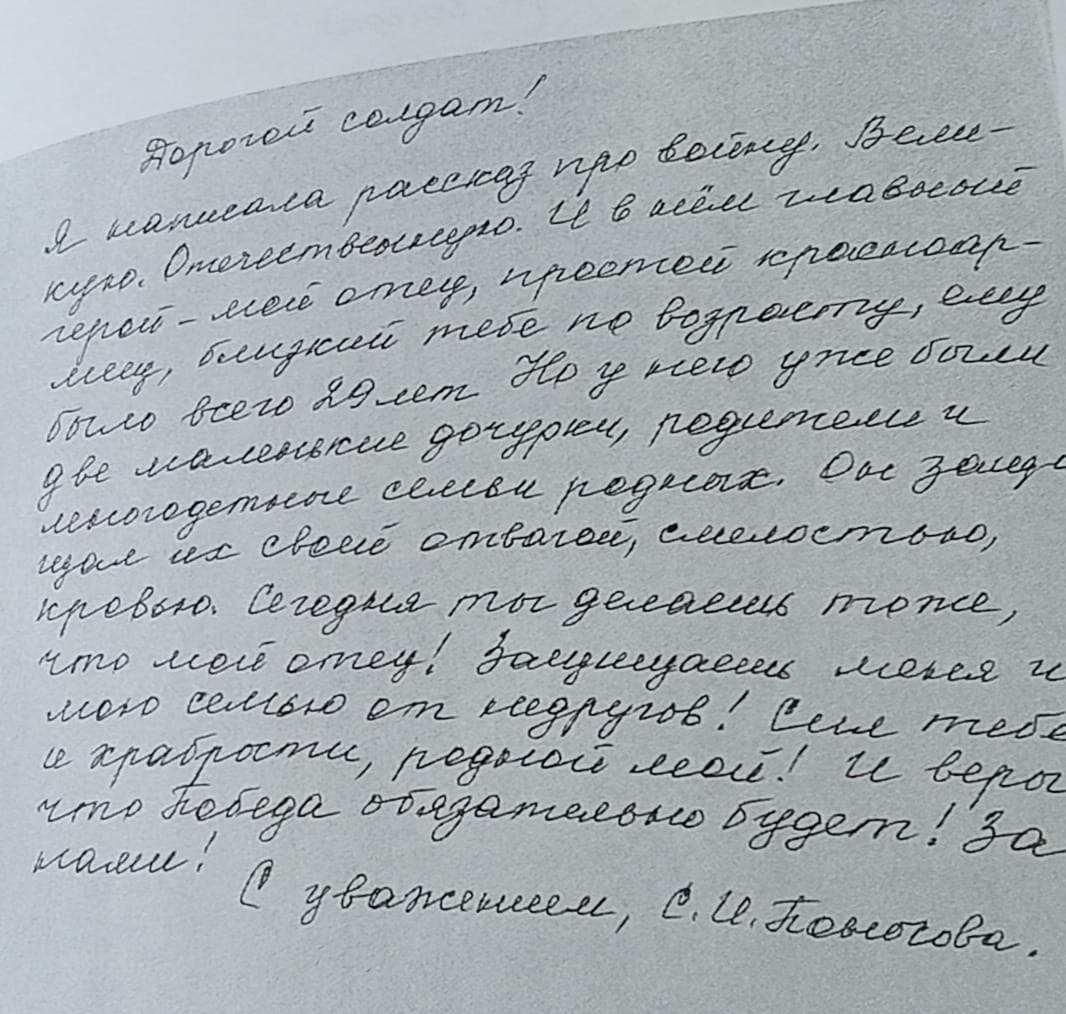 Дорогой солдат!
Я написала рассказ про войну. Вели-
кую. Отечественную. И в нём главный
герой - мой отец, простой красноар-
меец, близкий тебе по возрасту, ему
было всего 29 лет Но у него уже были
две маленькие дочурки, родители и
многодетные семьи родных. Он защи-
щал их своей отвагой, смелостью,
кровью. Сегодня ты делаешь тоже,
что мой отец! Защищаешь меня и
мою семью от недругов! Сил тебе
и храбрости, родной мой! И веры
что Победа обязательно будет! За
нами!
С уважением, С.И.